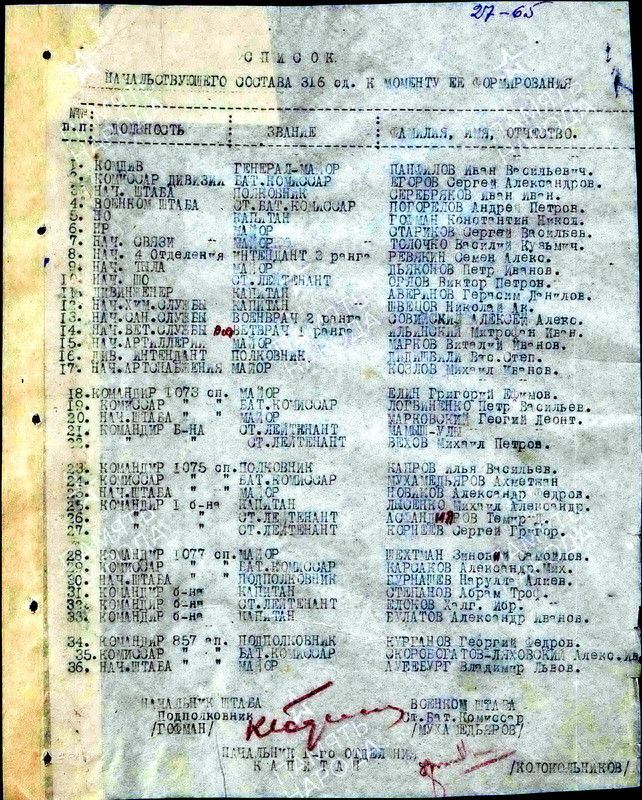 27-65
СПИСОК
НАЧАЛЬСТВУЮЩЕГО СОСТАВА 316 сд. К МОМЕНТУ ЕЕ ФОРМИРОВАНИЯ
№№ п.п: ДОЛЖНОСТЬ : ЗВАНИЕ : ФАМИЛИЯ, ИМЯ, ОТЧЕСТВО.
1. КОМДИВ ГЕНЕРАЛ-МАЙОР ПАНФИЛОВ Иван Васильевич.
2. КОМИССАР ДИВИЗИИ БАТ.КОМИССАР ЕГОРОВ Сергей Александров.
3. НАЧ. ШТАБА ПОЛКОВНИК СЕРЕБРЯКОВ Иван Иван.
4. ВОЕНКОМ ШТАБА СТ.БАТ.КОМИССАР ПОГОРЕЛОВ Андрей Петров.
5. НО КАПИТАН ГОФМАН Константин Никол.
6. НР МАЙОР СТАРИКОВ Сергей Васильев.
7. НАЧ. СВЯЗИ МАЙОР ТОЛОЧКО Василий Кузьмич.
8. НАЧ. 4 Отделения ИНТЕНДАНТ 3 ранга РЕВЯКИН Семен Алекс.
9. НАЧ. ТЫЛА МАЙОР ДЬЯКОНОВ Петр Иванов.
10. НАЧ. ШО СТ.ЛЕЙТЕНАНТ ОРЛОВ Виктор Петров.
11. ДИВИНЖЕНЕР КАПИТАН АВЕРИНОВ Герасим Данилов.
12. НАЧ.ХИМ.СЛУЖБЫ КАПИТАН ШВЕЦОВ Николай
13. НАЧ.САН.СЛУЖБЫ ВОЕНВРАЧ 2 ранга АЛЕКСЕЙ Алекс.
14. НАЧ.ВЕТ.СЛУЖБЫ ВЕТВРАЧ 1 ранга ИЛЬИНСКИЙ Митрофан Иван.
15. НАЧ.АРТИЛЛЕРИИ МАЙОР МАРКОВ Виталий Иванов.
16. ДИВ. ИНТЕНДАНТ ПОЛКОВНИК
17. НАЧ.АРТСНАБЖЕНИЯ МАЙОР КОЗЛОВ Михаил Иванов.
18. КОМАНДИР 1073 сп. МАЙОР ЕЛИН Григорий Ефимов.
19. КОМИССАР " " БАТ.КОМИССАР ЛОГВИНЕНКО Петр Васильев.
20. НАЧ.ШТАБА " " МАЙОР МАРКОВСКИЙ Георгий Леонт.
21. КОМАНДИР Б-НА СТ.ЛЕЙТЕНАНТ МАМЫШ-УЛЫ
22. " " СТ.ЛЕЙТЕНАНТ ВЕХОВ Михаил Петров.
23. КОМАНДИР 1075 сп. ПОЛКОВНИК КАПРОВ Илья Васильев.
24. КОМИССАР " " БАТ.КОМИССАР МУХАМЕДЬЯРОВ Ахметжан
25. НАЧ.ШТАБА " " МАЙОР НОВИКОВ Александр Федров.
25. КОМАНДИР 1 б-на КАПИТАН ЛЫСЕНКО Михаил Александр.
26. " " СТ.ЛЕЙТЕНАНТ
27. " " СТ.ЛЕЙТЕНАНТ КОРНЕЕВ Сергей Григор.
28. КОМАНДИР 1077 сп. МАЙОР ШЕХТМАН Зиновий Самойлов.
29. КОМИССАР " " БАТ.КОМИССАР КОРСАКОВ Александр.Мих.
30. НАЧ.ШТАБА " " ПОДПОЛКОВНИК БУРНАШЕВ Нарулла Алиев.
31. КОМАНДИР б-на КАПИТАН СТЕПАНОВ Абрам Троф.
32. КОМАНДИР б-на СТ.ЛЕЙТЕНАНТ
33. КОМАНДИР б-на КАПИТАН БУЛАТОВ Александр Иванов.
34. КОМАНДИР 857 ап. ПОДПОЛКОВНИК КУРГАНОВ Георгий Федров.
35. КОМИССАР " " БАТ.КОМИССАР СКОРОБОГАТОВ-ЛЯХОВСКИЙ Алекс.Ив
36. НАЧ.ШТАБА " " МАЙОР Владимир Львов.
НАЧАЛЬНИК ШТАБА ВОЕНКОМ ШТАБА
Подполковник Ст.Бат.Комиссар
/ГОФМАН/ /МУХАМЕДЬЯРОВ/
НАЧАЛЬНИК 1-го ОТДЕЛЕНИЯ
КАПИТАН /КОЛОКОЛЬНИКОВ/